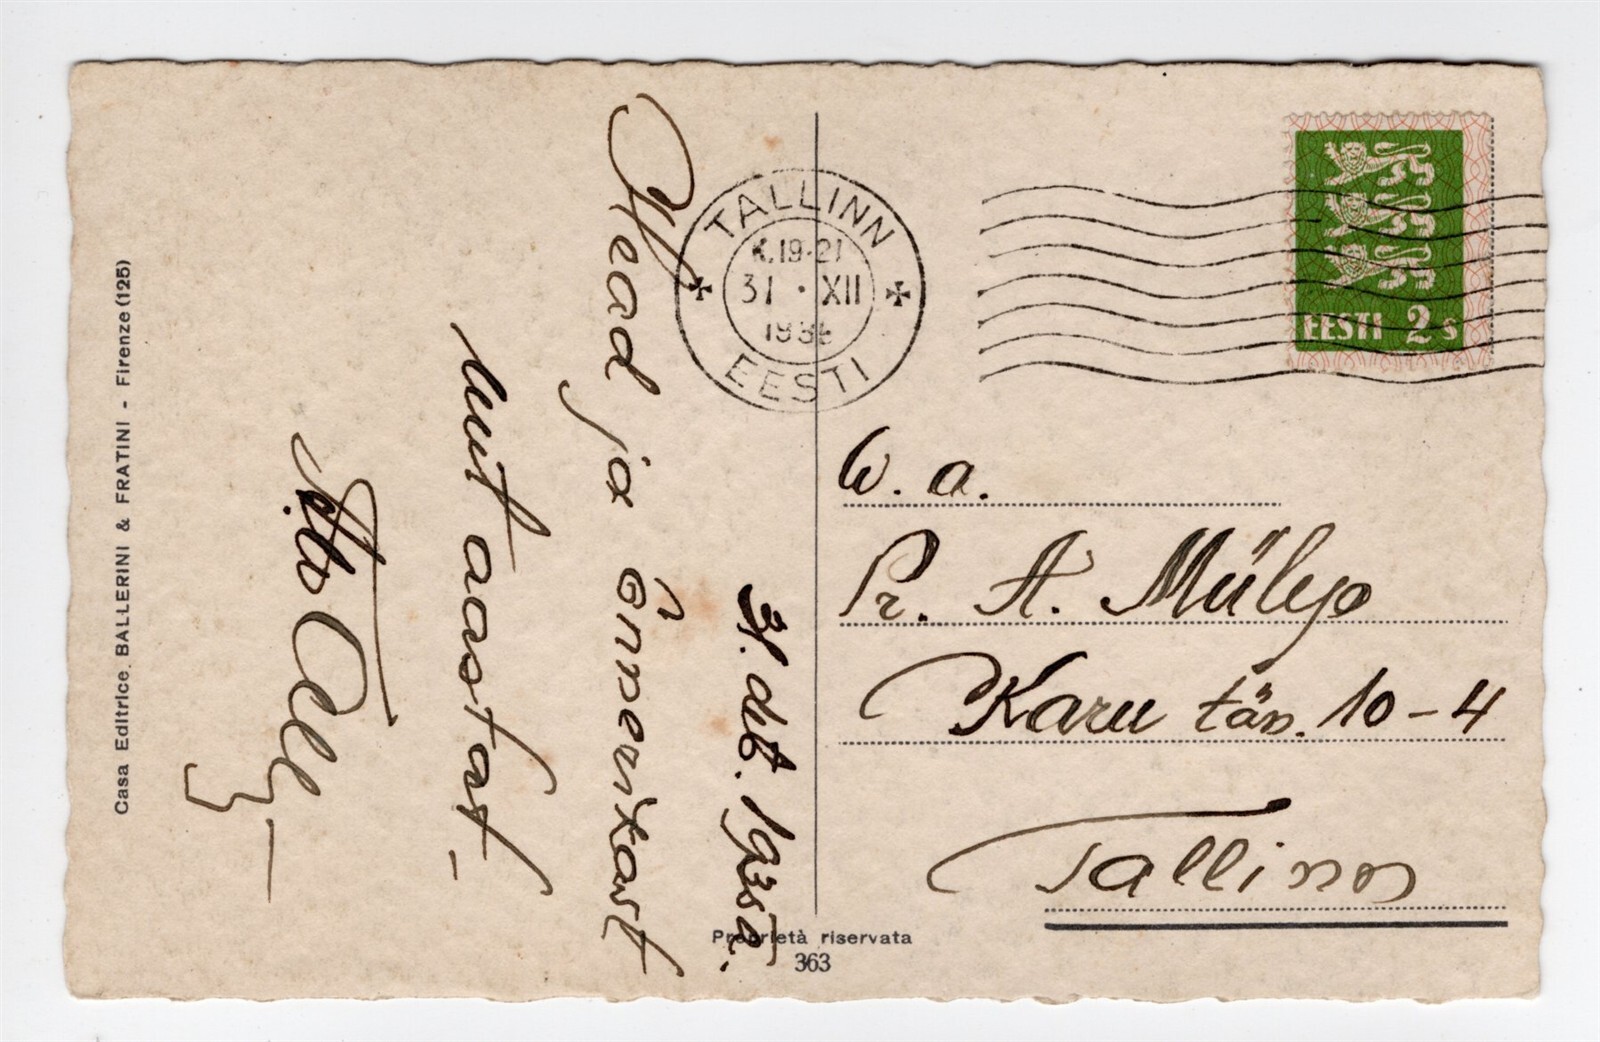 Head ja
õnnerikast
uut aastat.
31. dets. 1935a.
TALLINN
K.19-21
31 · XII
EESTI
EESTI 2 s
W. a.
Pr. A. Mülle
Karu tän. 10-4
Tallinn
Casa Editrice BALLERINI & FRATINI - Firenze (125)
Proprietà riservata
363